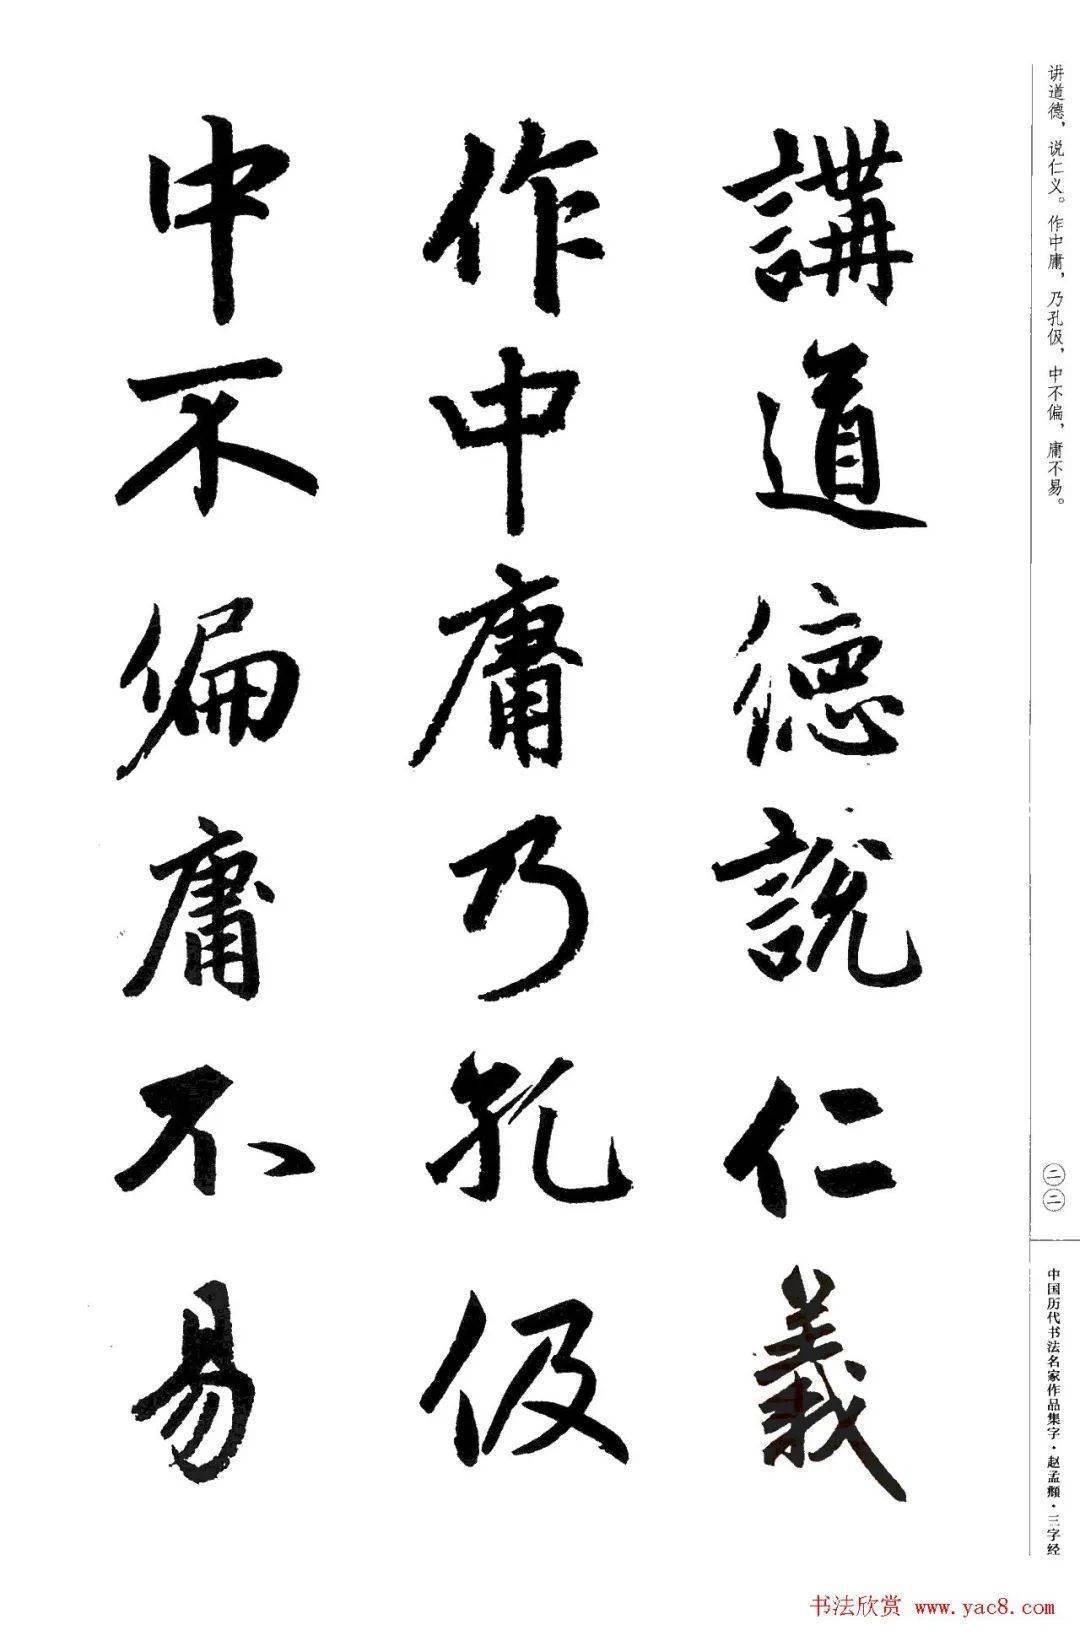 講道德說仁義
作中庸乃孔伋
中不偏庸不易
讲道德，说仁义。作中庸，乃孔伋，中不偏，庸不易。
二二
中国历代书法名家作品集字·赵孟頫·三字经
书法欣赏 www.yac8.com